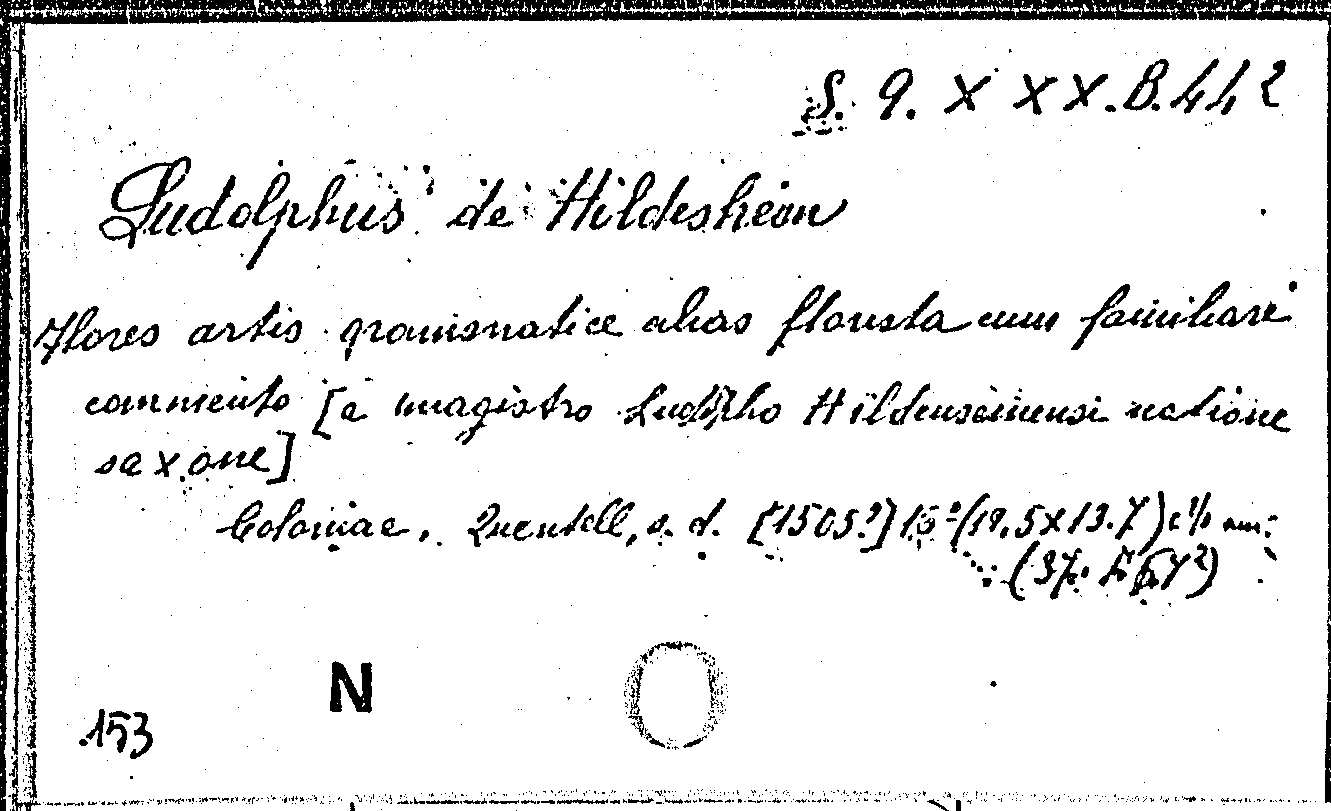 S. Q. XXX.B.442
Ludolphus de Hildesheim
Flores artis gramisnatice alias florista cum familiari
commento [a magistro Ludolpho Hildenseimensi natione
saxone]
Coloniae, Quentell, s. d. [1505?] (19.5x13.7)
153
N